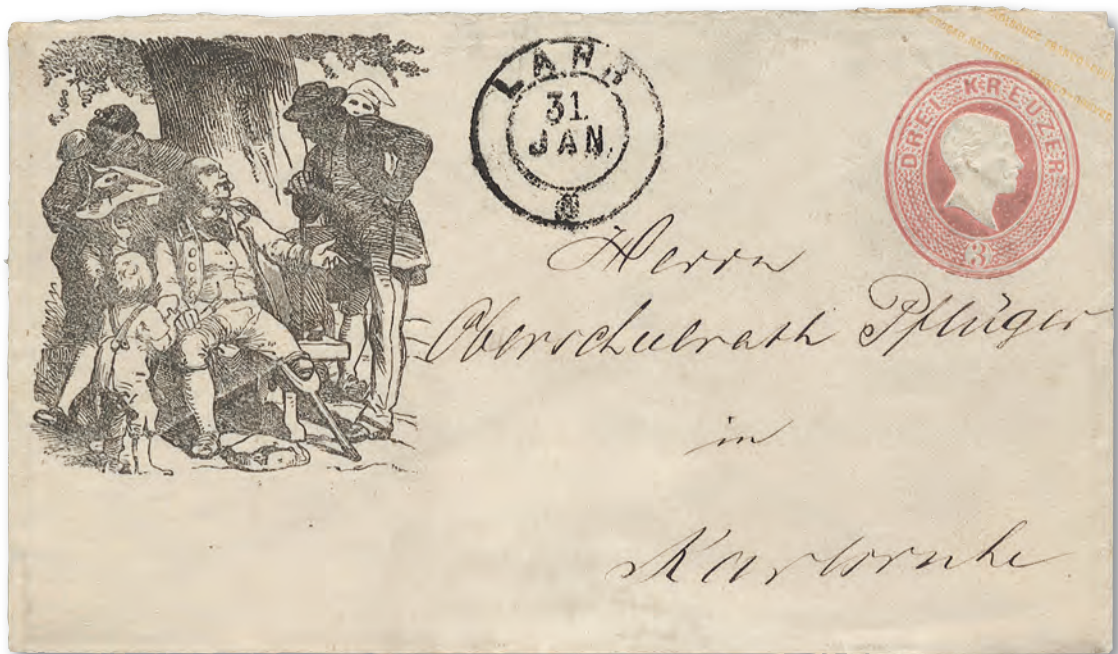 LAHR
31.
JAN.
DREI KREUZER
3
Herrn
Oberschulrath Pflüger
in
Karlsruhe